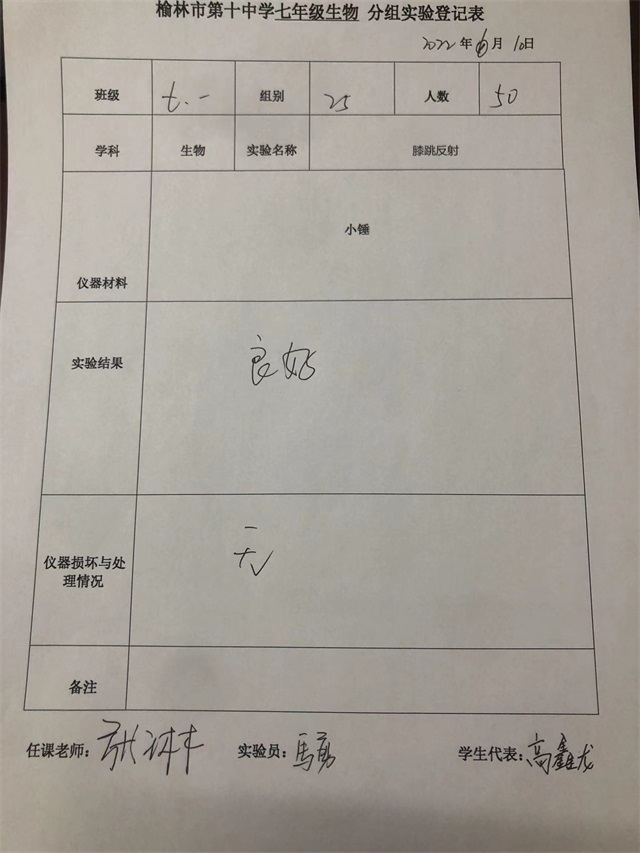 榆林市第十中学七年级生物 分组实验登记表
2022年 月 10日
班级 七.一 组别 25 人数 50
学科 生物 实验名称 膝跳反射
仪器材料 小锤
实验结果 良好
仪器损坏与处
理情况 无
备注
任课老师: 实验员: 学生代表:高鑫龙